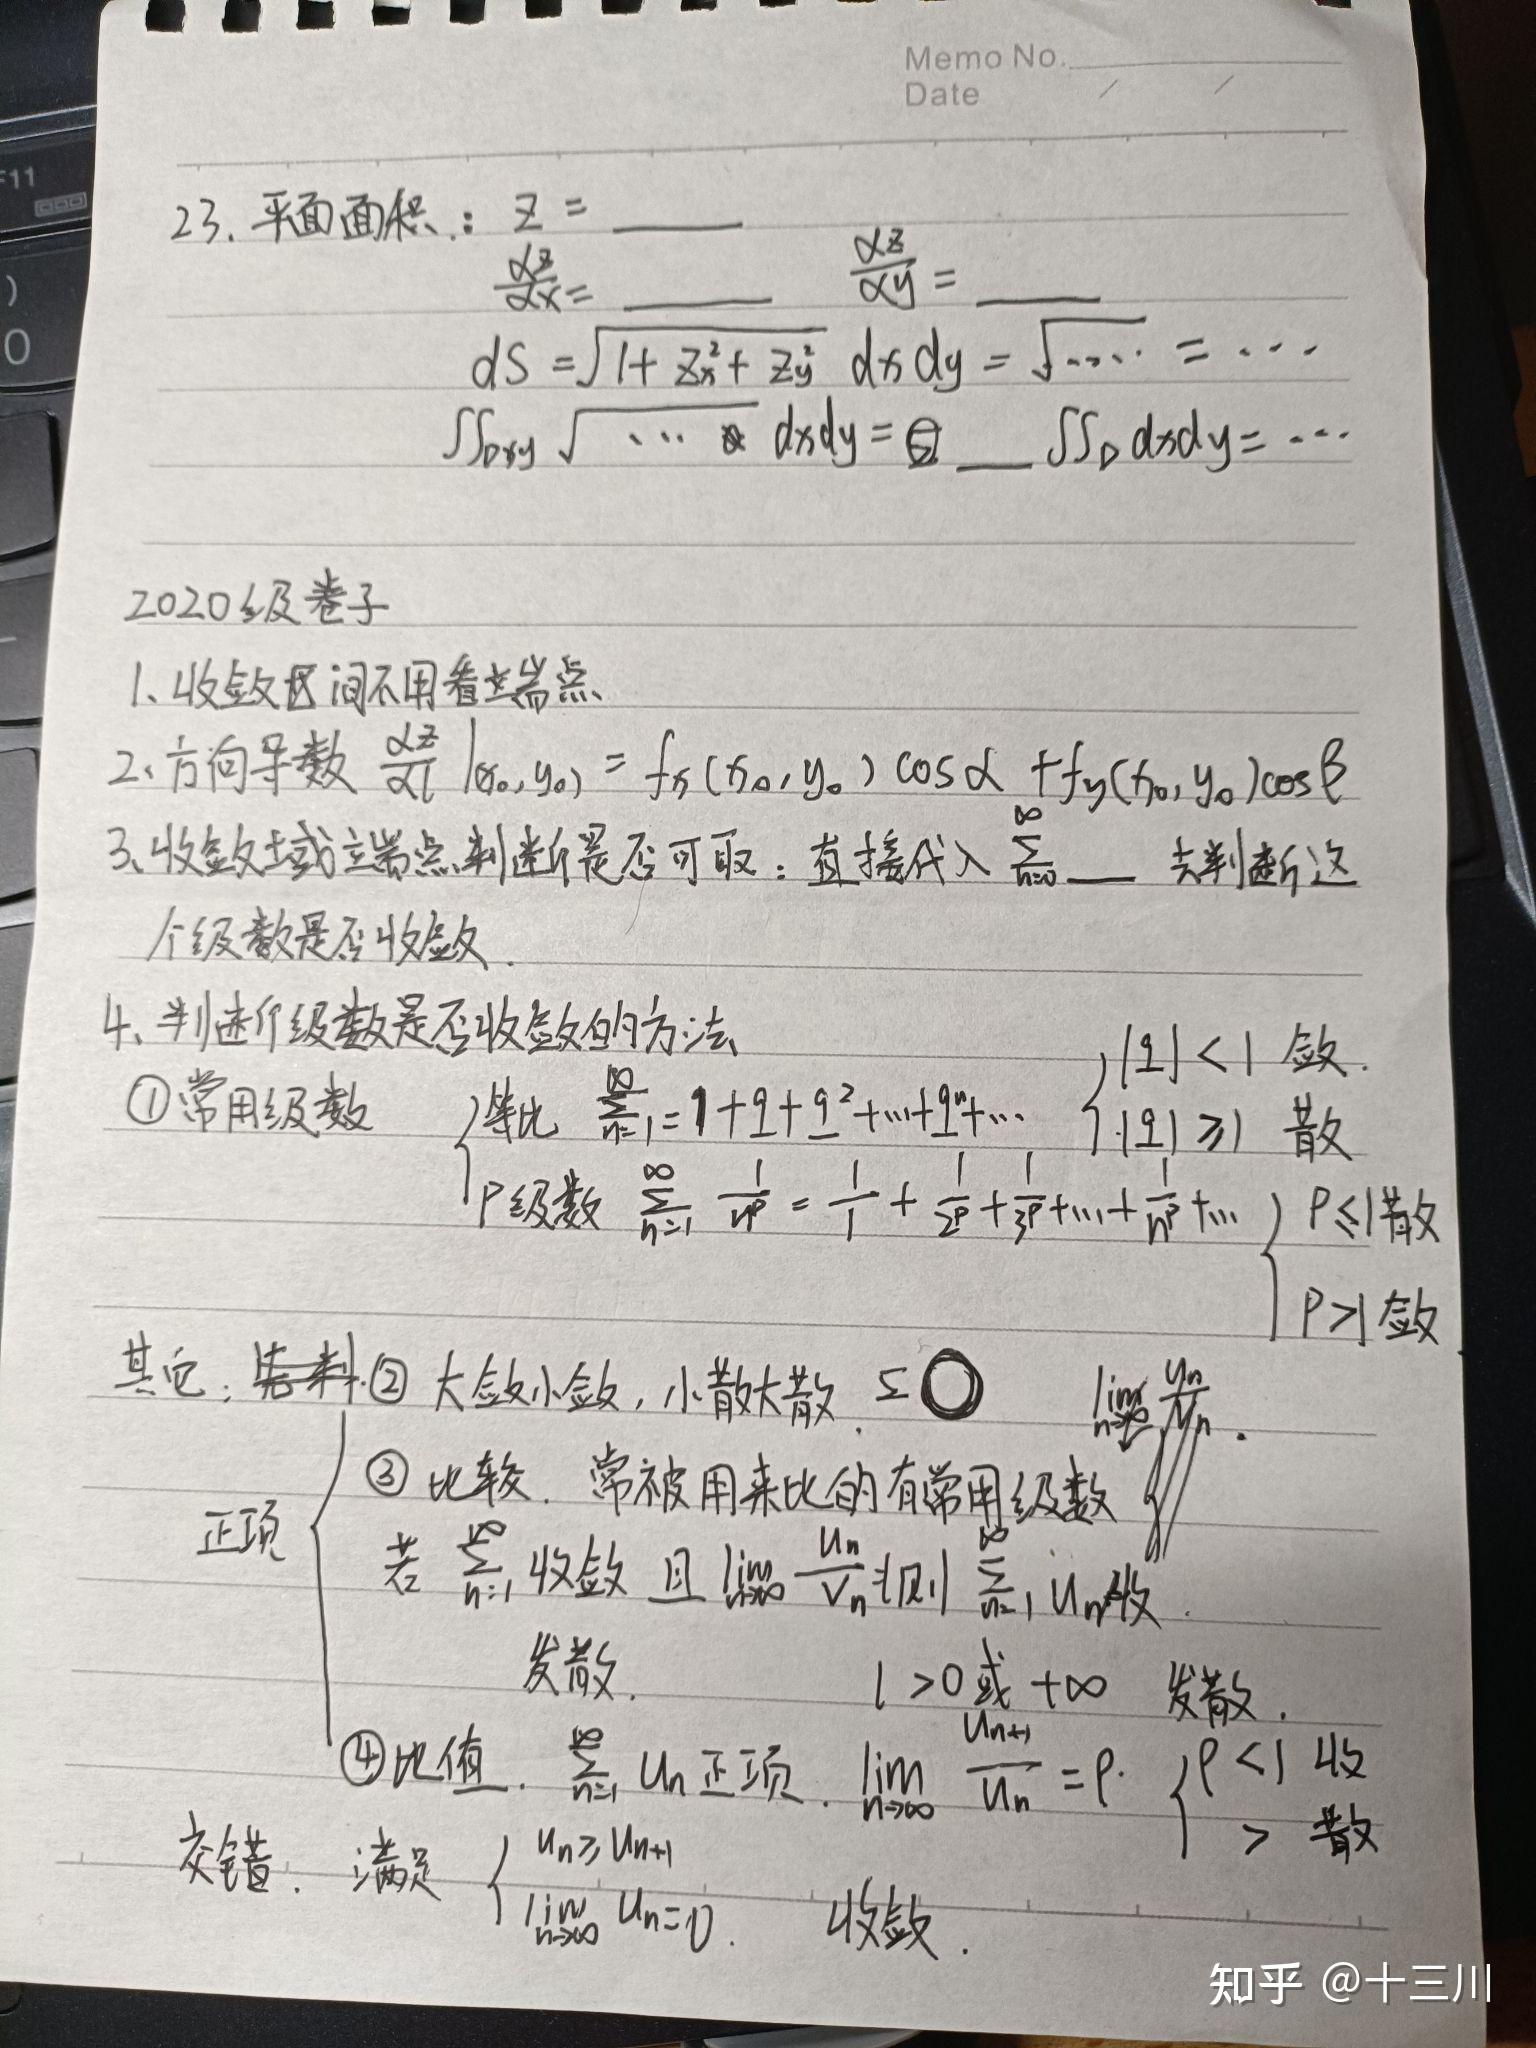 Memo No.
Date / /
F11
)
0
23、平面面积：z = ____
αz/αx = ____ αz/αy = ____
dS = √(1 + Zx² + Zy²) dxdy = √.... = ...
∬Dxy √... dxdy = ____ ∬D dxdy = ...
2020级卷子
1、收敛区间不用看端点
2、方向导数 αz/αl |(x₀,y₀) = fx(x₀,y₀)cosα + fy(x₀,y₀)cosβ
3、收敛域端点判断是否可取：直接代入 ∑n=0^∞ ____ 去判断这
个级数是否收敛.
4、判断级数是否收敛的方法
①常用级数 { 等比 ∑n=1^∞ = 1+q+q²+...+qⁿ+... { |q|<1 敛.
|q|≥1 散
P级数 ∑n=1^∞ 1/n^p = 1/1 + 1/2^p + 1/3^p +...+ 1/n^p +... { P≤1散
P>1敛
其它：② 大敛小敛，小散大散. ≤ ○ lim n→∞ un/vn.
正项 { ③ 比较. 常被用来比的有常用级数
若 ∑n=1^∞ 收敛 且 lim n→∞ un/vn 则 ∑n=1^∞ un收.
发散. l>0或+∞ 发散.
④比值. ∑n=1^∞ un正项. lim n→∞ un+1/un = ρ. { ρ<1 收
> 散
交错. 满足 { un≥un+1
lim n→∞ un=0. 收敛.
知乎 @十三川